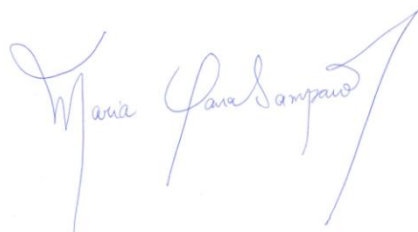 Maria Yara Sampaio